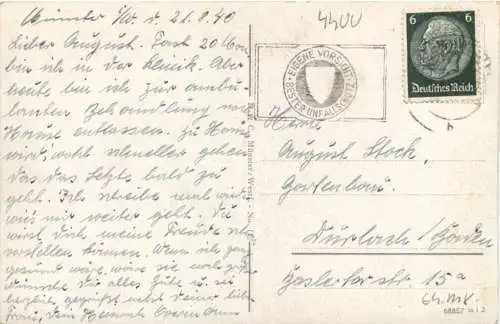 Münster i/W. d. 21.8.40
Lieber August. Fast 20 Mon.
bin ich in der Klinik. Aber
heute bin ich zur ambu-
lanten Behandlung nach
Hause entlassen. Zu Hause
wird, wohl schneller gehen
das das Letzte bald zu
geht. Ich schreibe mal wie
wie's mir weiter geht. Du
wirst Dich meine Freude
vorstellen können. Wenn ich ganz
gesund wäre, wäre sie noch
wünsche Dir alles Gute u. sei
herzlich gegrüßt nebst deiner lieb.
Frau, dein Heinrich
4400
EIGENE VORSICHT
BESTER UNFALLSCHUTZ
6 6
Deutsches Reich
Herrn
August Stock,
Gartenbau.
Durlach/Baden
Baslerstr. 15a
68857 m.l. 2